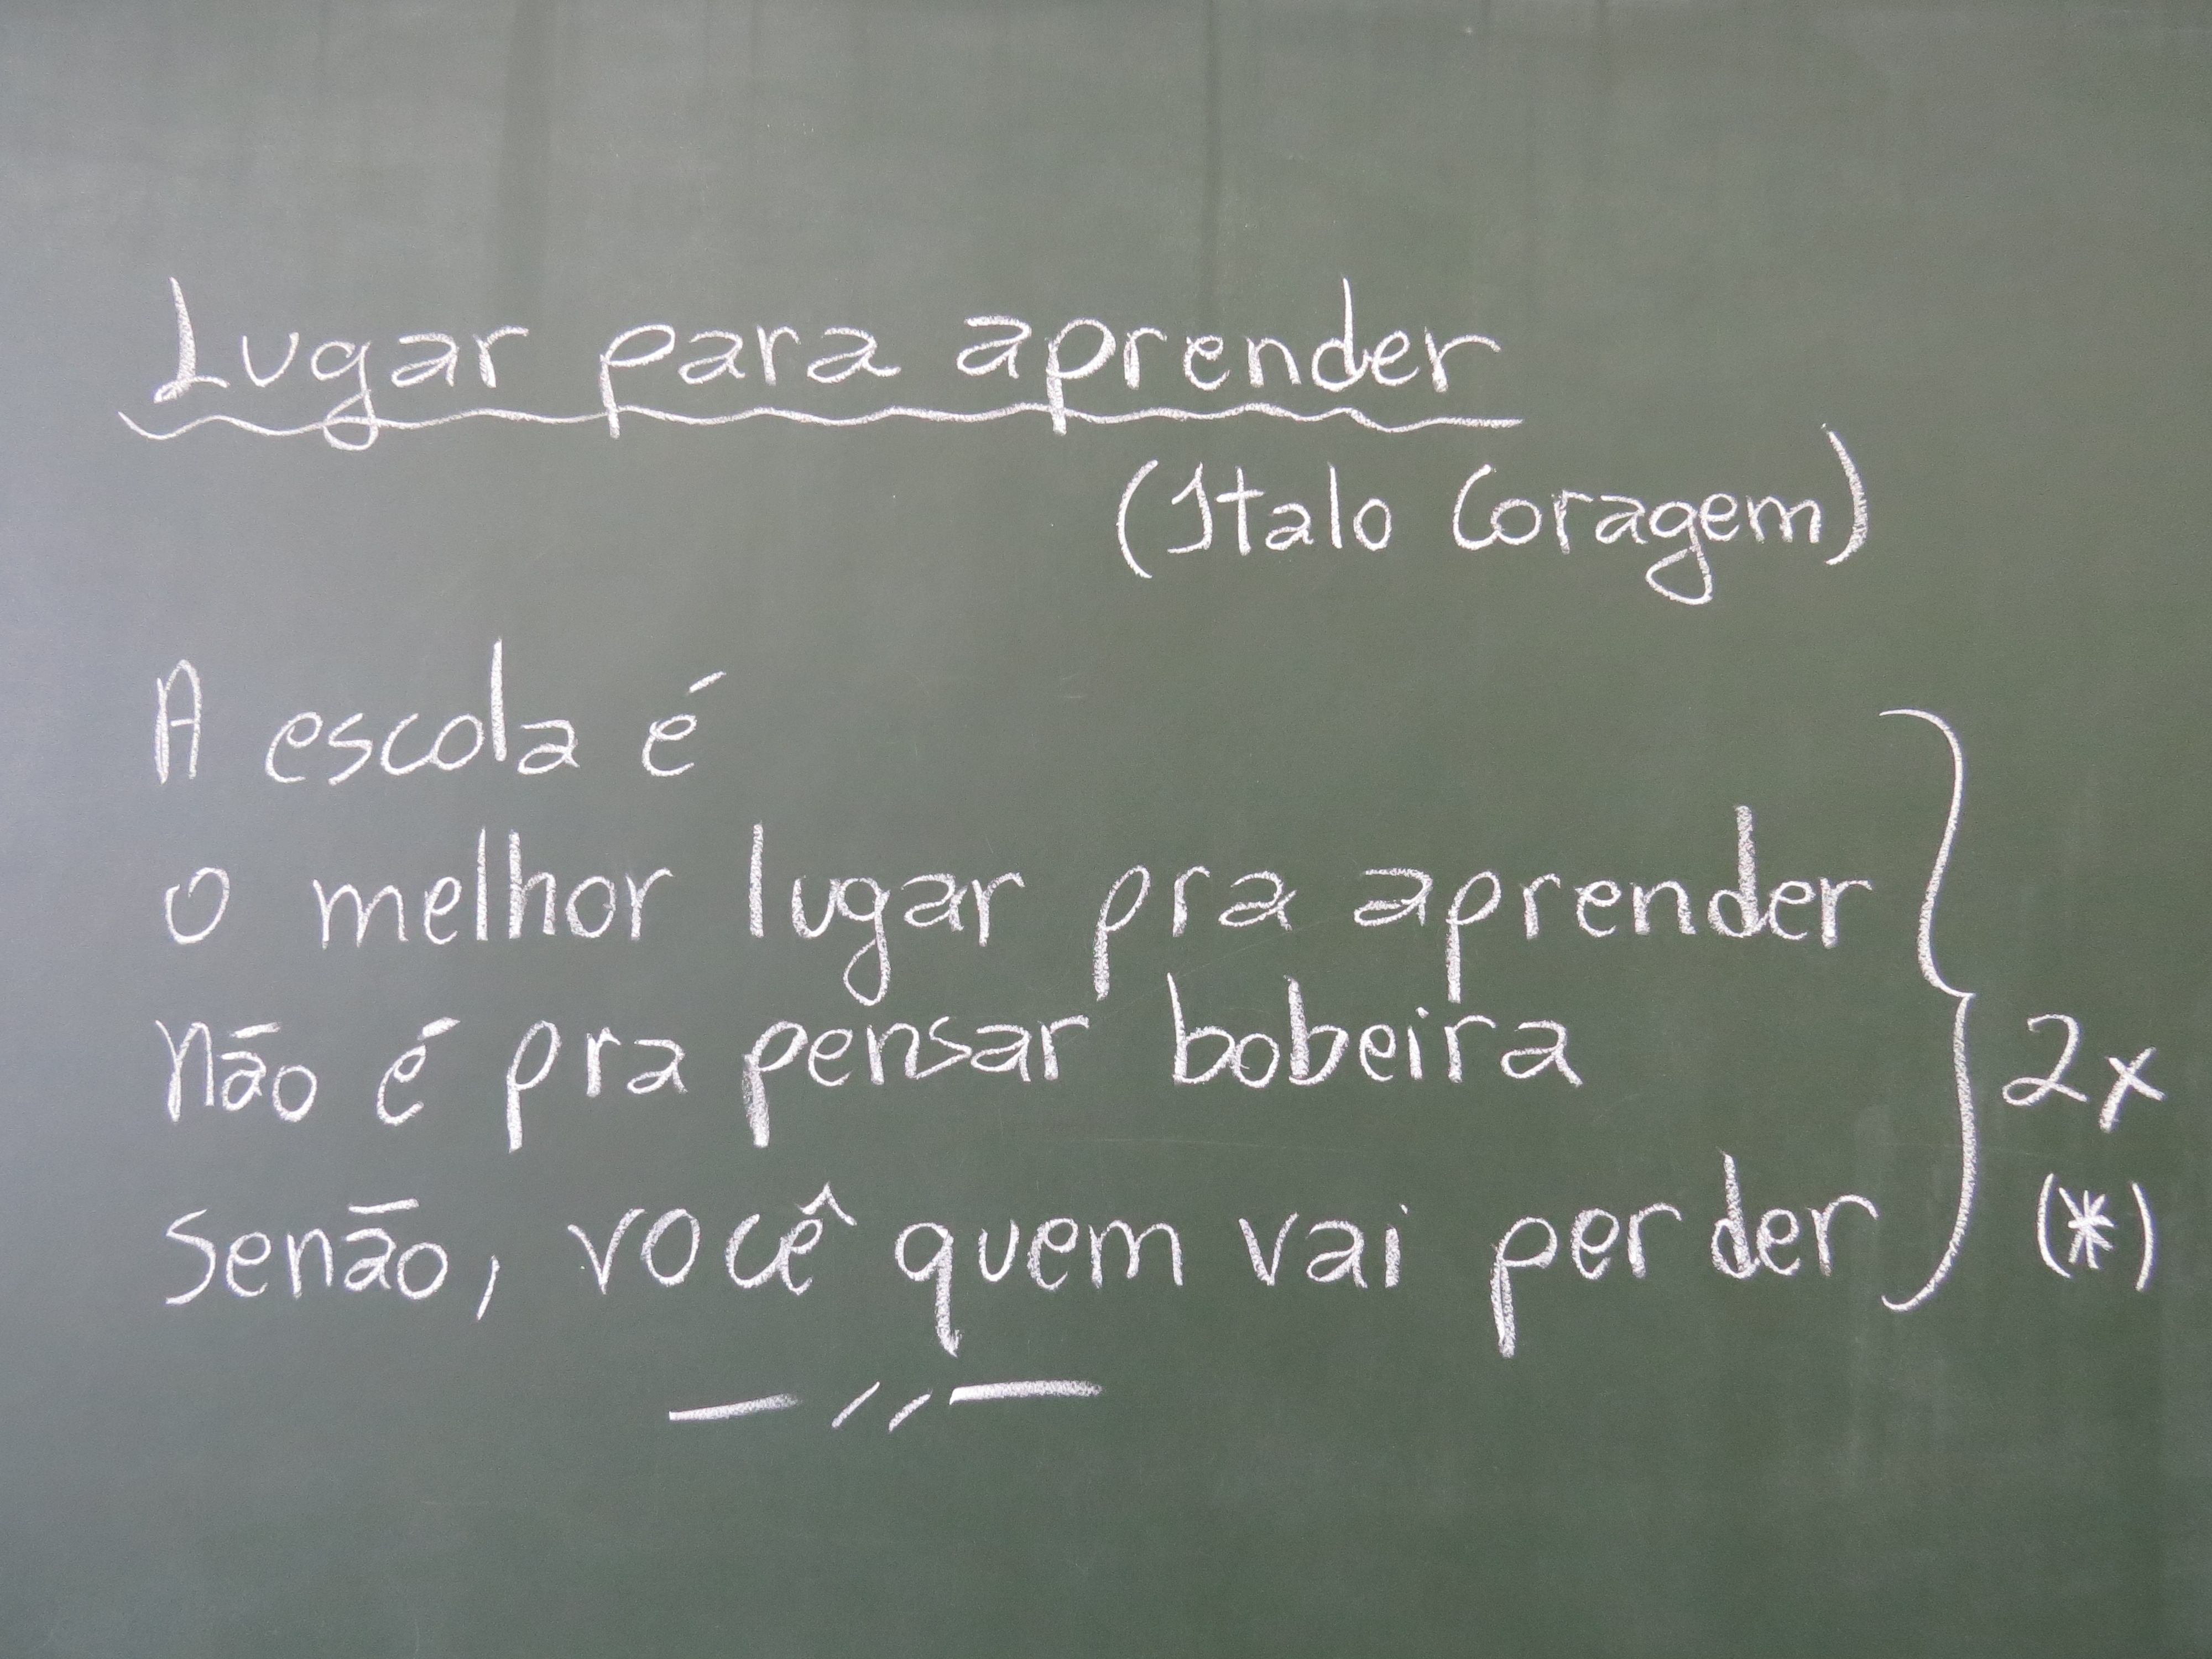 Lugar para aprender
(Italo Coragem)
A escola é
o melhor lugar pra aprender
não é pra pensar bobeira
senão, você quem vai perder
2x
(*)
— // —